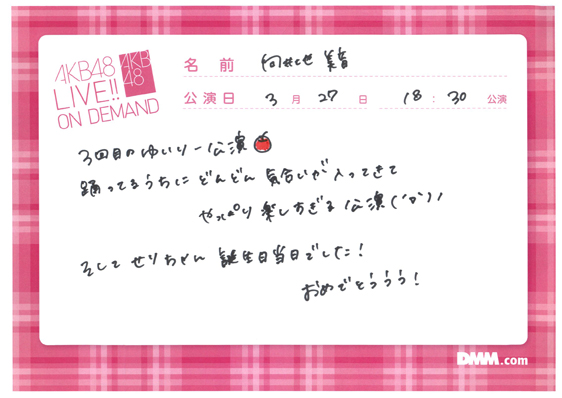 AKB48
LIVE!!
ON DEMAND
AKB
48
名前 向井地 美音
公演日 3月27日 18:30 公演
3回目のゆいりー公演🍅
踊ってるうちに どんどん 気合いが入ってきて
やっぱり 楽しすぎる 公演(('o')ノ
そして せりちゃん 誕生日当日でした!
おめでとううう!
DMM.com